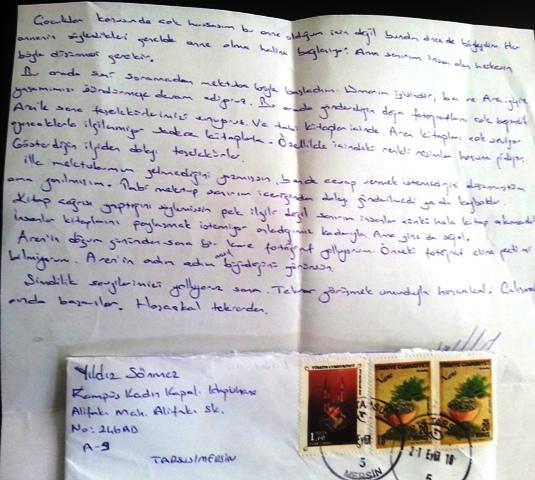 Çocuklar konusunda çok hassasım bu anne olduğum için değil bundan önce de böyleydim. Her
annenin söyledikleri genelde anne olma haline bağlanıyor. Ama sanırım insan olan herkesin
böyle düşünmesi gerekir.
Bu arada seni sormadan mektuba böyle başladım. Umarım iyisindir, ben ve Aren iyiyiz
yaşamımızı sürdürmeye devam diyoruz. Bu arada gönderdiğin doğa fotoğrafları çok beğendik
Aren'le sana teşekkürlerimizi sunuyoruz. Ve tabi kitaplar içinde. Aren kitapları çok seviyor
oyuncaklarla ilgilenmiyor sadece kitaplarla. Özellikle içindeki renkli resimler hoşuna gidiyor.
Gösterdiğin ilgiden dolayı teşekkürler.
İlk mektubumun gelmediğini yazmışsın, bende cevap vermek istemediğini düşünmüştüm
ama yanılmışım. Tabi mektup sanırım içeriğinden dolayı gönderilmedi ya da kayboldu.
Kitap çağrısı yaptığını söylemişsin pek ilgili değil sanırım insanlar çünkü hala kitap
insanlar kitaplarını paylaşmak istemiyor anladığımız kadarıyla. Ama yine de sağol.
Aren'in doğum gününden sana bir kare fotoğraf yolluyorum. Önceki fotoğraf eline geçti mi
bilmiyorum. Aren'in adım adım büyüdüğünü görürsün.
Şimdilik sevgilerimizi yolluyoruz sana. Tekrar görüşmek umuduyla hoşçakal.
anda başarılar. Hoşçakal tekrardan.
Yıldız Sönmez
Kampüs Kadın Kapalı
Alifakı Mah. Alifakı Sk.
No: 246AD
A-9
TARSUS/MERSİN
TÜRKİYE CUMHURİYETİ
TÜRKİYE CUMHURİYETİ
TÜRKİYE CUMHURİYETİ
MERSİN
5
21 Eylül 18
5